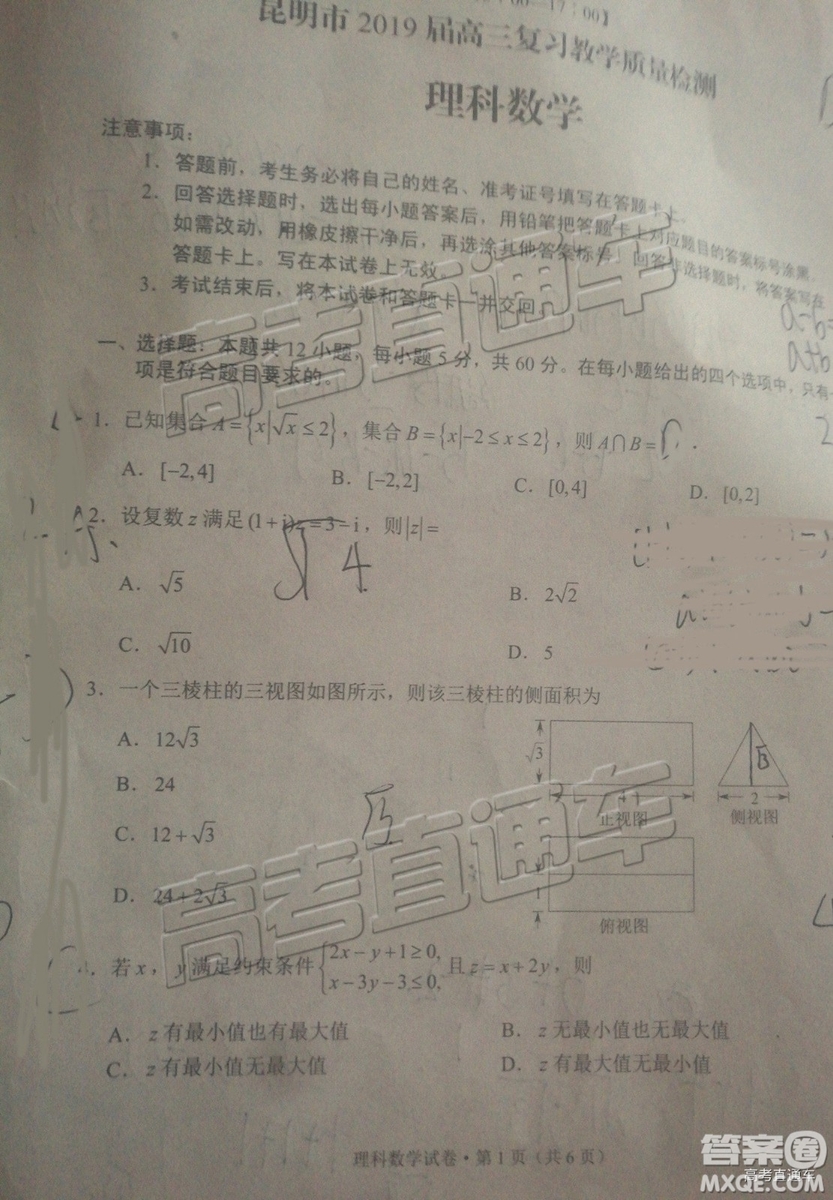 :00—17:00】
昆明市 2019 届高三复习教学质量检测
理科数学
注意事项：
1．答题前，考生务必将自己的姓名、准考证号填写在答题卡上。
2．回答选择题时，选出每小题答案后，用铅笔把答题卡上对应题目的答案标号涂黑。
如需改动，用橡皮擦干净后，再选涂其他答案标号。回答非选择题时，将答案写在
答题卡上。写在本试卷上无效。
3．考试结束后，将本试卷和答题卡一并交回。
一、选择题：本题共 12 小题，每小题 5 分，共 60 分。在每小题给出的四个选项中，只有
项是符合题目要求的。
1．已知集合 A={x|√x≤2}，集合 B={x|-2≤x≤2}，则 A∩B=
A．[-2,4] B．[-2,2] C．[0,4] D．[0,2]
2．设复数 z 满足 (1+i)z=3-i，则|z|=
A．√5 B．2√2
√ 4
C．√10 D．5
3．一个三棱柱的三视图如图所示，则该三棱柱的侧面积为
A．12√3
B．24
C．12+√3
D．24+2√3
√3
4
正视图
√3
2
侧视图
1
俯视图
√3
．若 x，y 满足约束条件 {2x-y+1≥0, x-3y-3≤0, 且 z=x+2y，则
A．z 有最小值也有最大值 B．z 无最小值也无最大值
C．z 有最小值无最大值 D．z 有最大值无最小值
理科数学试卷·第 1 页（共 6 页）
高考直通车
高考直通车
答案圈
高考直通车
MXQE.COM